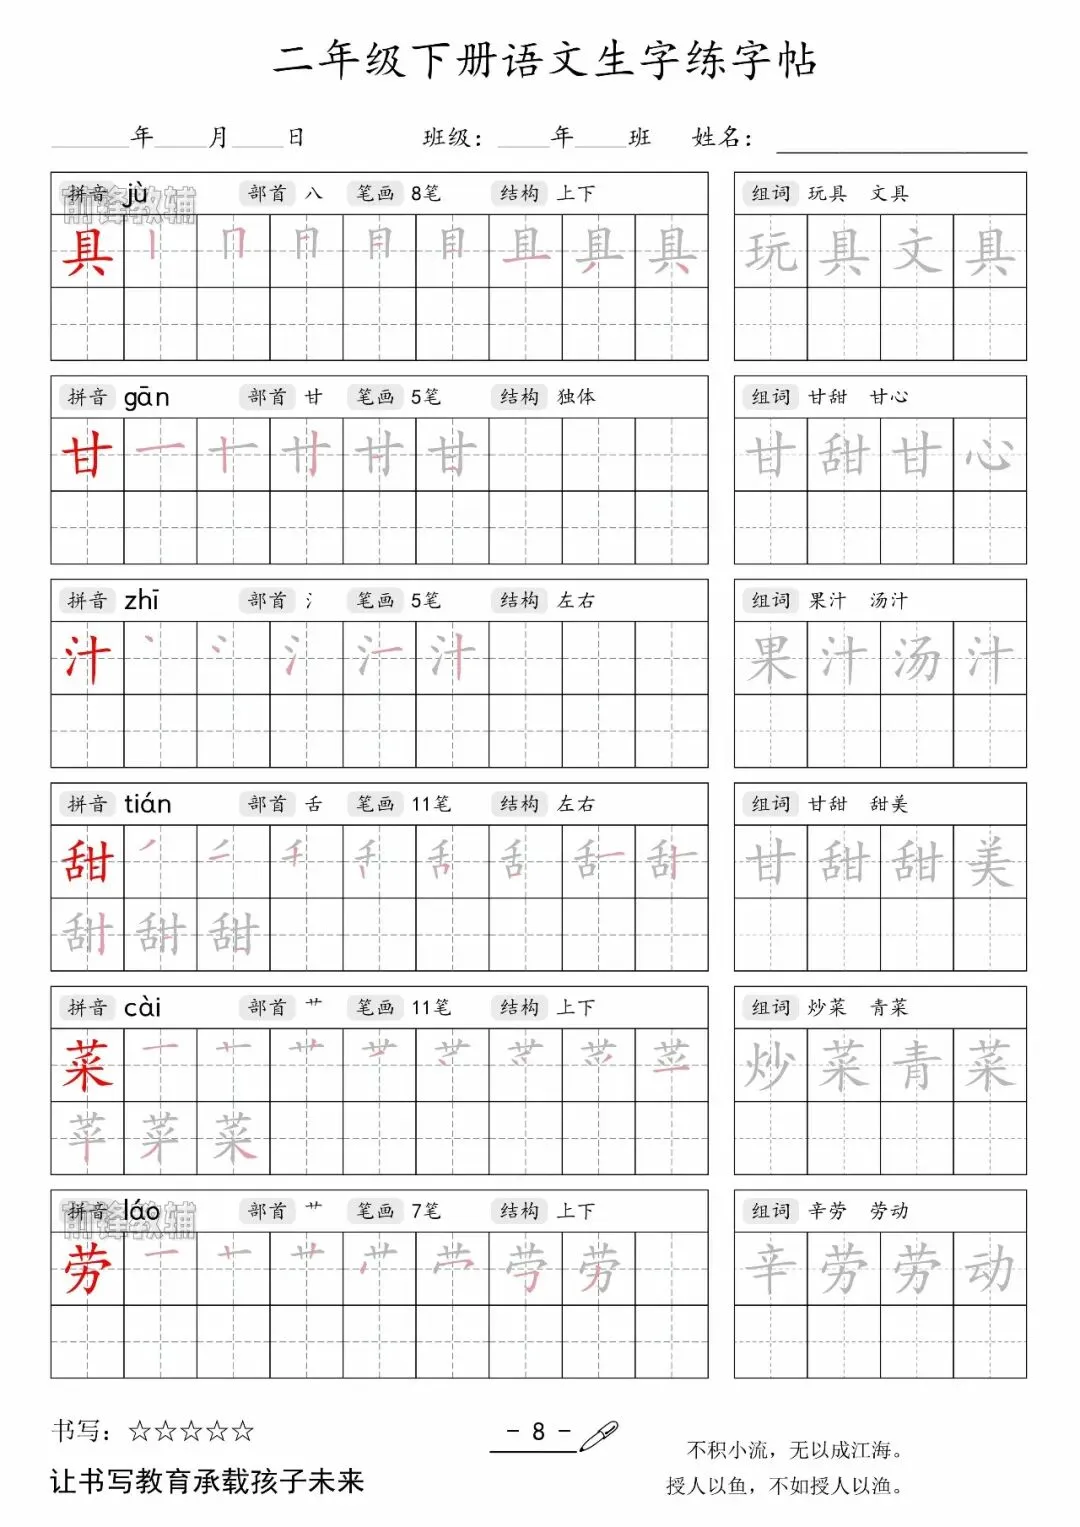 二年级下册语文生字练字帖
______年____月____日 班级：____年____班 姓名：____________
拼音 jù 部首 八 笔画 8笔 结构 上下 组词 玩具 文具
前锋教辅
具 玩具文具
拼音 gān 部首 甘 笔画 5笔 结构 独体 组词 甘甜 甘心
甘 甘甜甘心
拼音 zhī 部首 氵 笔画 5笔 结构 左右 组词 果汁 汤汁
汁 果汁汤汁
拼音 tián 部首 舌 笔画 11笔 结构 左右 组词 甘甜 甜美
甜 甘甜甜美
甜 甜 甜
拼音 cài 部首 艹 笔画 11笔 结构 上下 组词 炒菜 青菜
菜 炒菜青菜
拼音 láo 部首 艹 笔画 7笔 结构 上下 组词 辛劳 劳动
前锋教辅
劳 辛劳劳动
书写：☆☆☆☆☆
让书写教育承载孩子未来
- 8 -
不积小流，无以成江海。
授人以鱼，不如授人以渔。